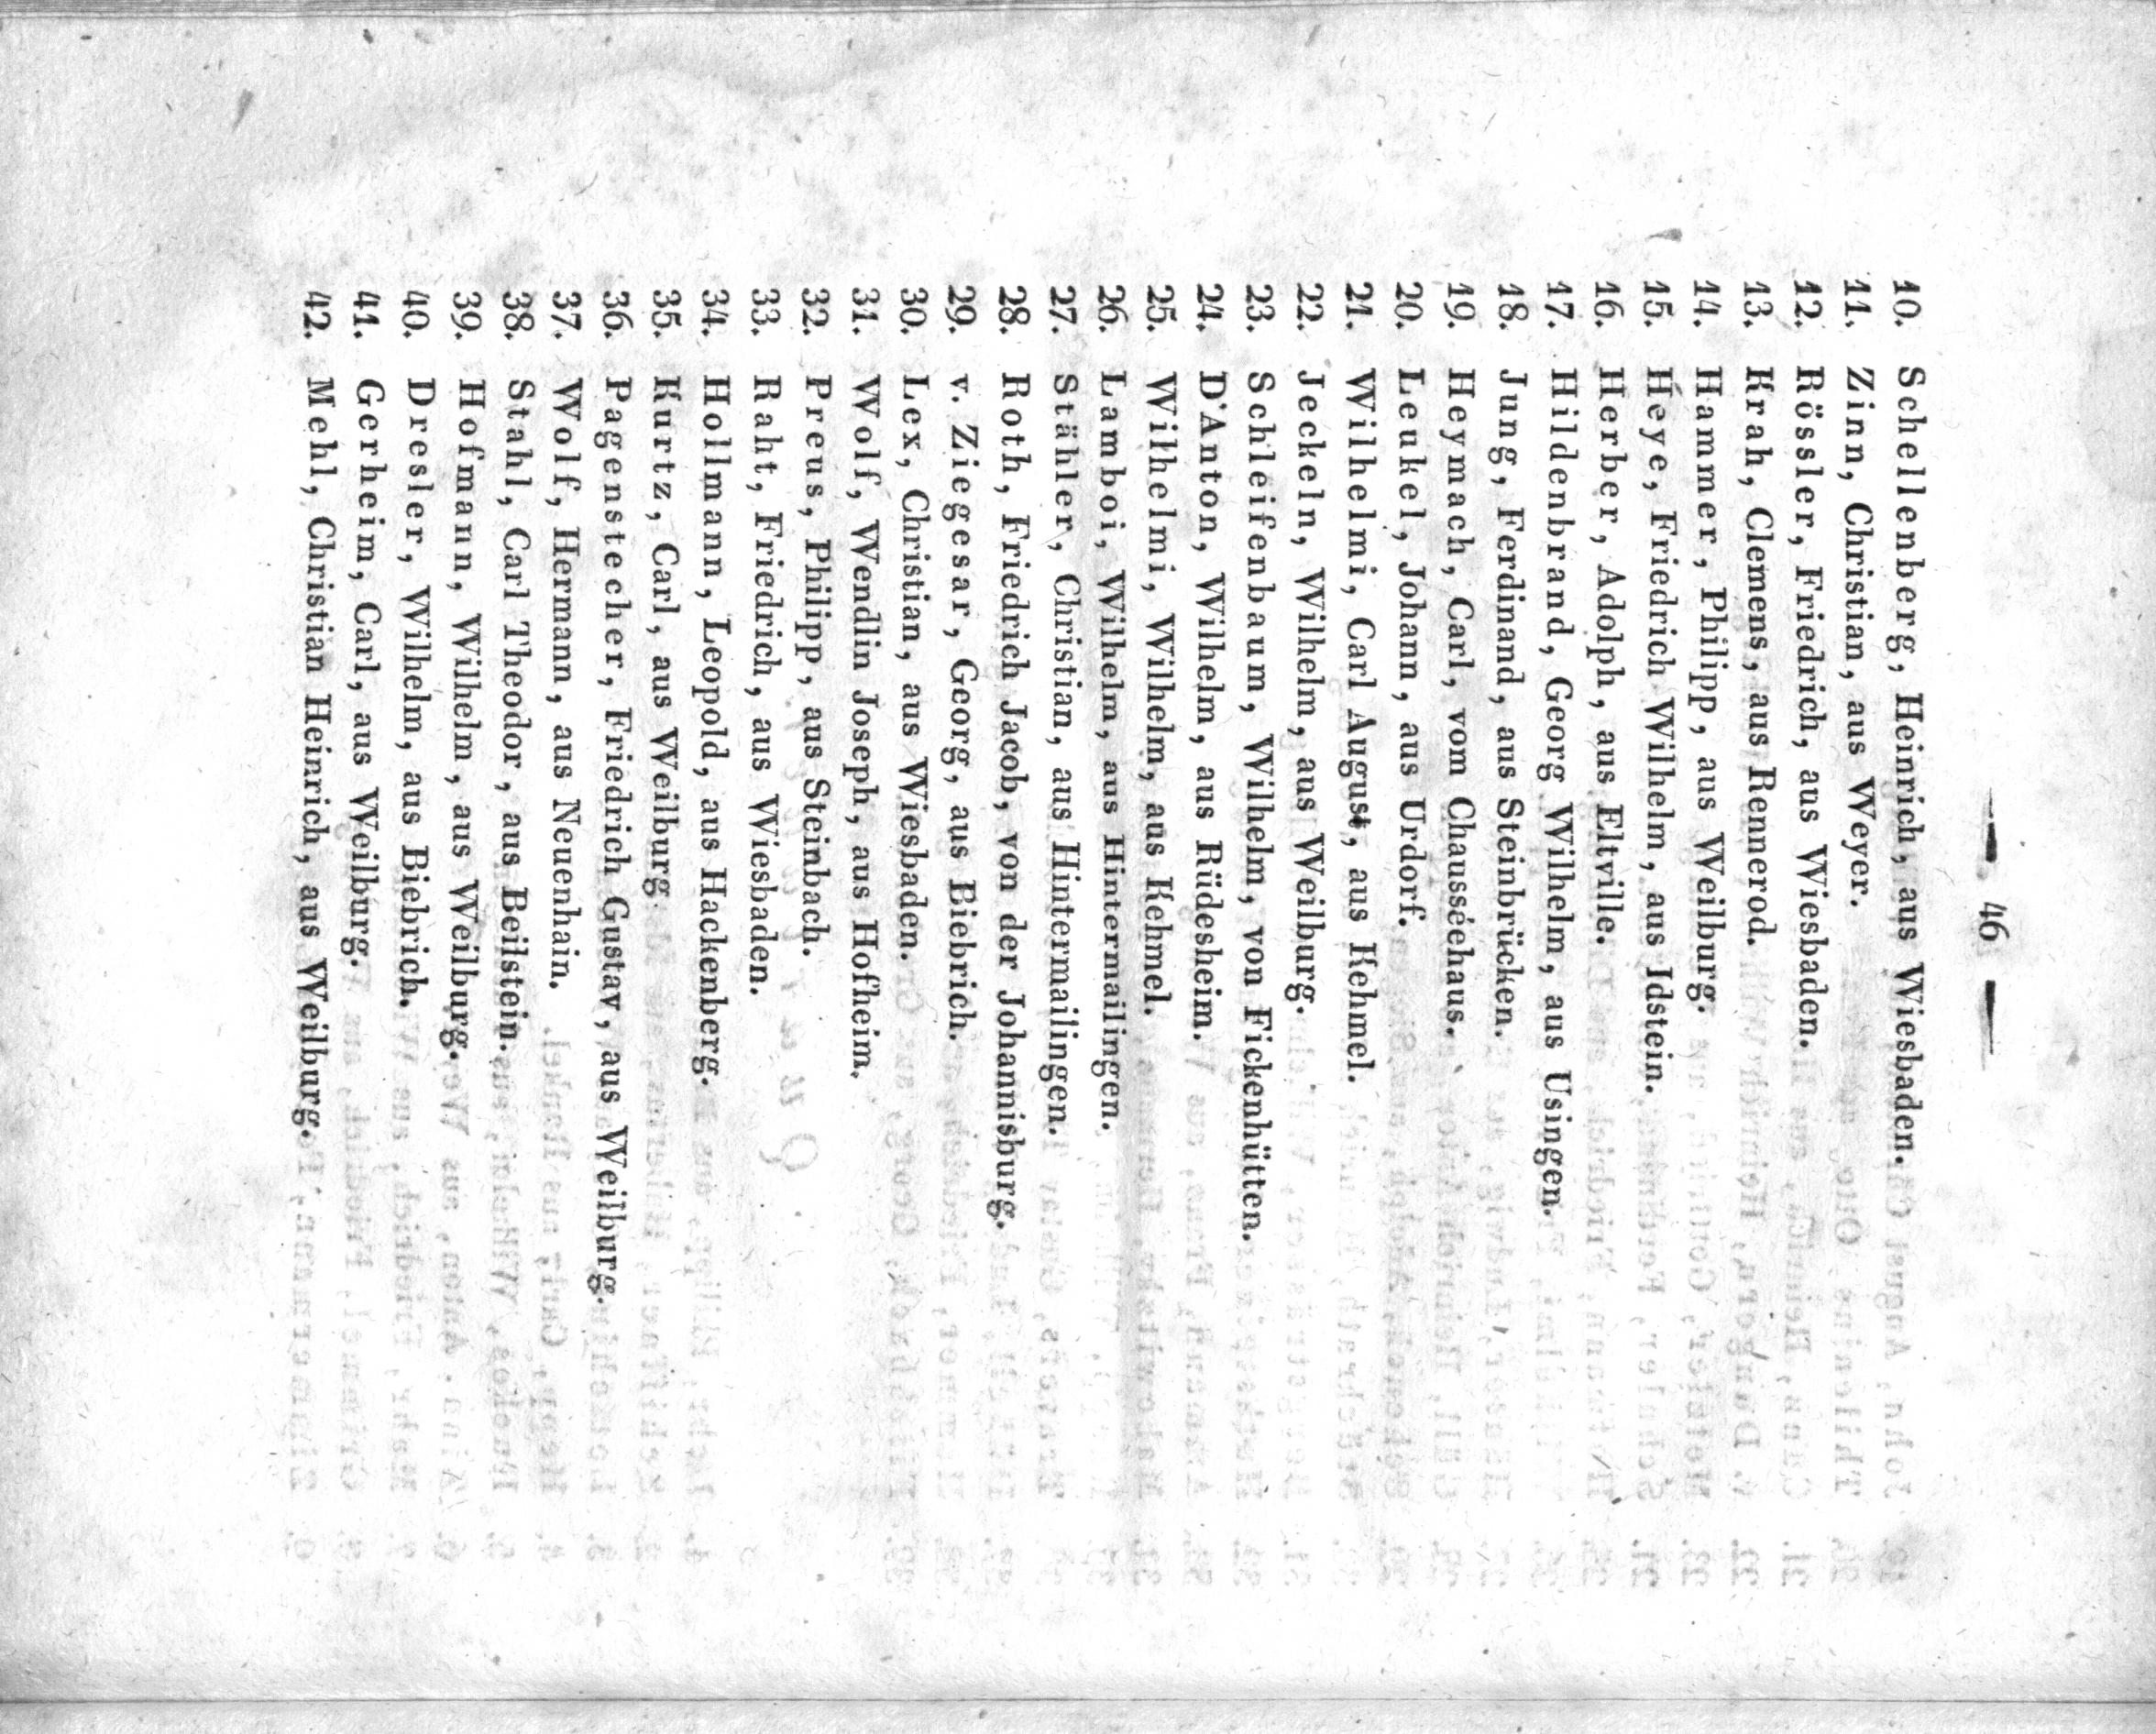 — 46 —
10. Schellenberg, Heinrich, aus Wiesbaden.
11. Zinn, Christian, aus Weyer.
12. Rössler, Friedrich, aus Wiesbaden.
13. Krah, Clemens, aus Rennerod.
14. Hammer, Philipp, aus Weilburg.
15. Heye, Friedrich Wilhelm, aus Idstein.
16. Herber, Adolph, aus Eltville.
17. Hildenbrand, Georg Wilhelm, aus Usingen.
18. Jung, Ferdinand, aus Steinbrücken.
19. Heymach, Carl, vom Chausséehaus.
20. Leukel, Johann, aus Urdorf.
21. Wilhelmi, Carl August, aus Kehmel.
22. Jeckeln, Wilhelm, aus Weilburg.
23. Schleifenbaum, Wilhelm, von Fickenhütten.
24. D'Anton, Wilhelm, aus Rüdesheim.
25. Wilhelmi, Wilhelm, aus Kehmel.
26. Lamboi, Wilhelm, aus Hintermailingen.
27. Stähler, Christian, aus Hintermailingen.
28. Roth, Friedrich Jacob, von der Johannisburg.
29. v. Ziegesar, Georg, aus Biebrich.
30. Lex, Christian, aus Wiesbaden.
31. Wolf, Wendlin Joseph, aus Hofheim.
32. Preus, Philipp, aus Steinbach.
33. Raht, Friedrich, aus Wiesbaden.
34. Hollmann, Leopold, aus Hackenberg.
35. Kurtz, Carl, aus Weilburg.
36. Pagenstecher, Friedrich Gustav, aus Weilburg.
37. Wolf, Hermann, aus Neuenhain.
38. Stahl, Carl Theodor, aus Beilstein.
39. Hofmann, Wilhelm, aus Weilburg.
40. Dresler, Wilhelm, aus Biebrich.
41. Gerheim, Carl, aus Weilburg.
42. Mehl, Christian Heinrich, aus Weilburg.